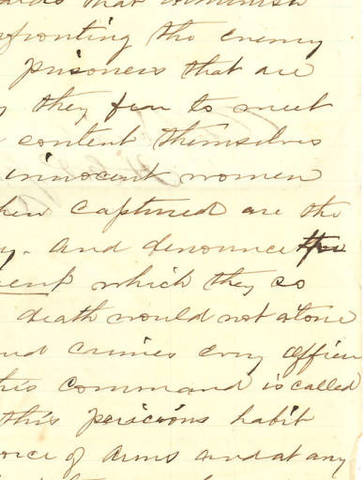 that diminish
fronting the enemy
prisoners that are
they fear to meet
content themselves
innocent women
captured are the
and denounce the
which they so
death would not atone
and crimes evry officer
this command is called
this pericious habit
force of arms and at any